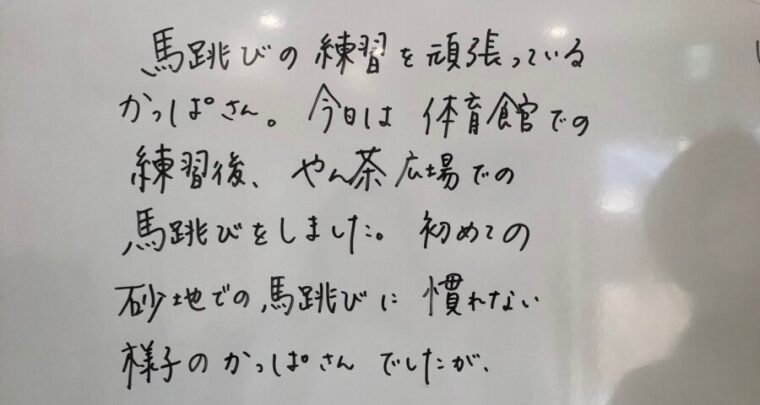 馬跳びの練習を頑張っている
かっぱさん。今日は体育館での
練習後、やん茶広場での
馬跳びをしました。初めての
砂地での馬跳びに慣れない
様子のかっぱさんでしたが、